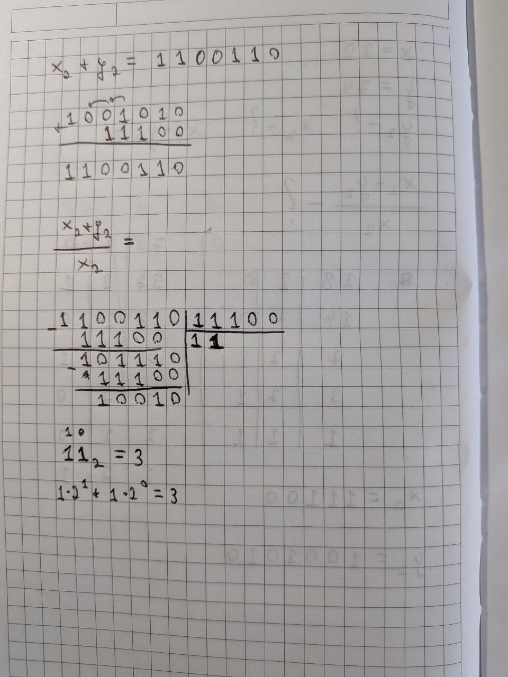 x₂ + y₂ = 1100110
+ 1001010
11100
1100110
x₂+y₂ =
x₂
- 1100110 | 11100
11100 11
- 101110
11100
10010
10
11₂ = 3
1·2¹ + 1·2⁰ = 3